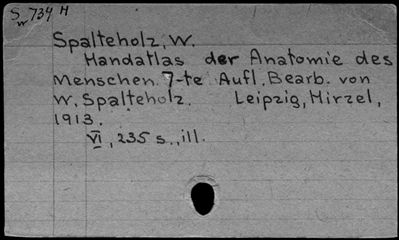 Sw 734 H
Spalteholz, W.
Handatlas der Anatomie des
Menschen. 7-te Aufl. Bearb. von
W. Spalteholz. Leipzig, Hirzel,
1913.
VI, 235 s., ill.